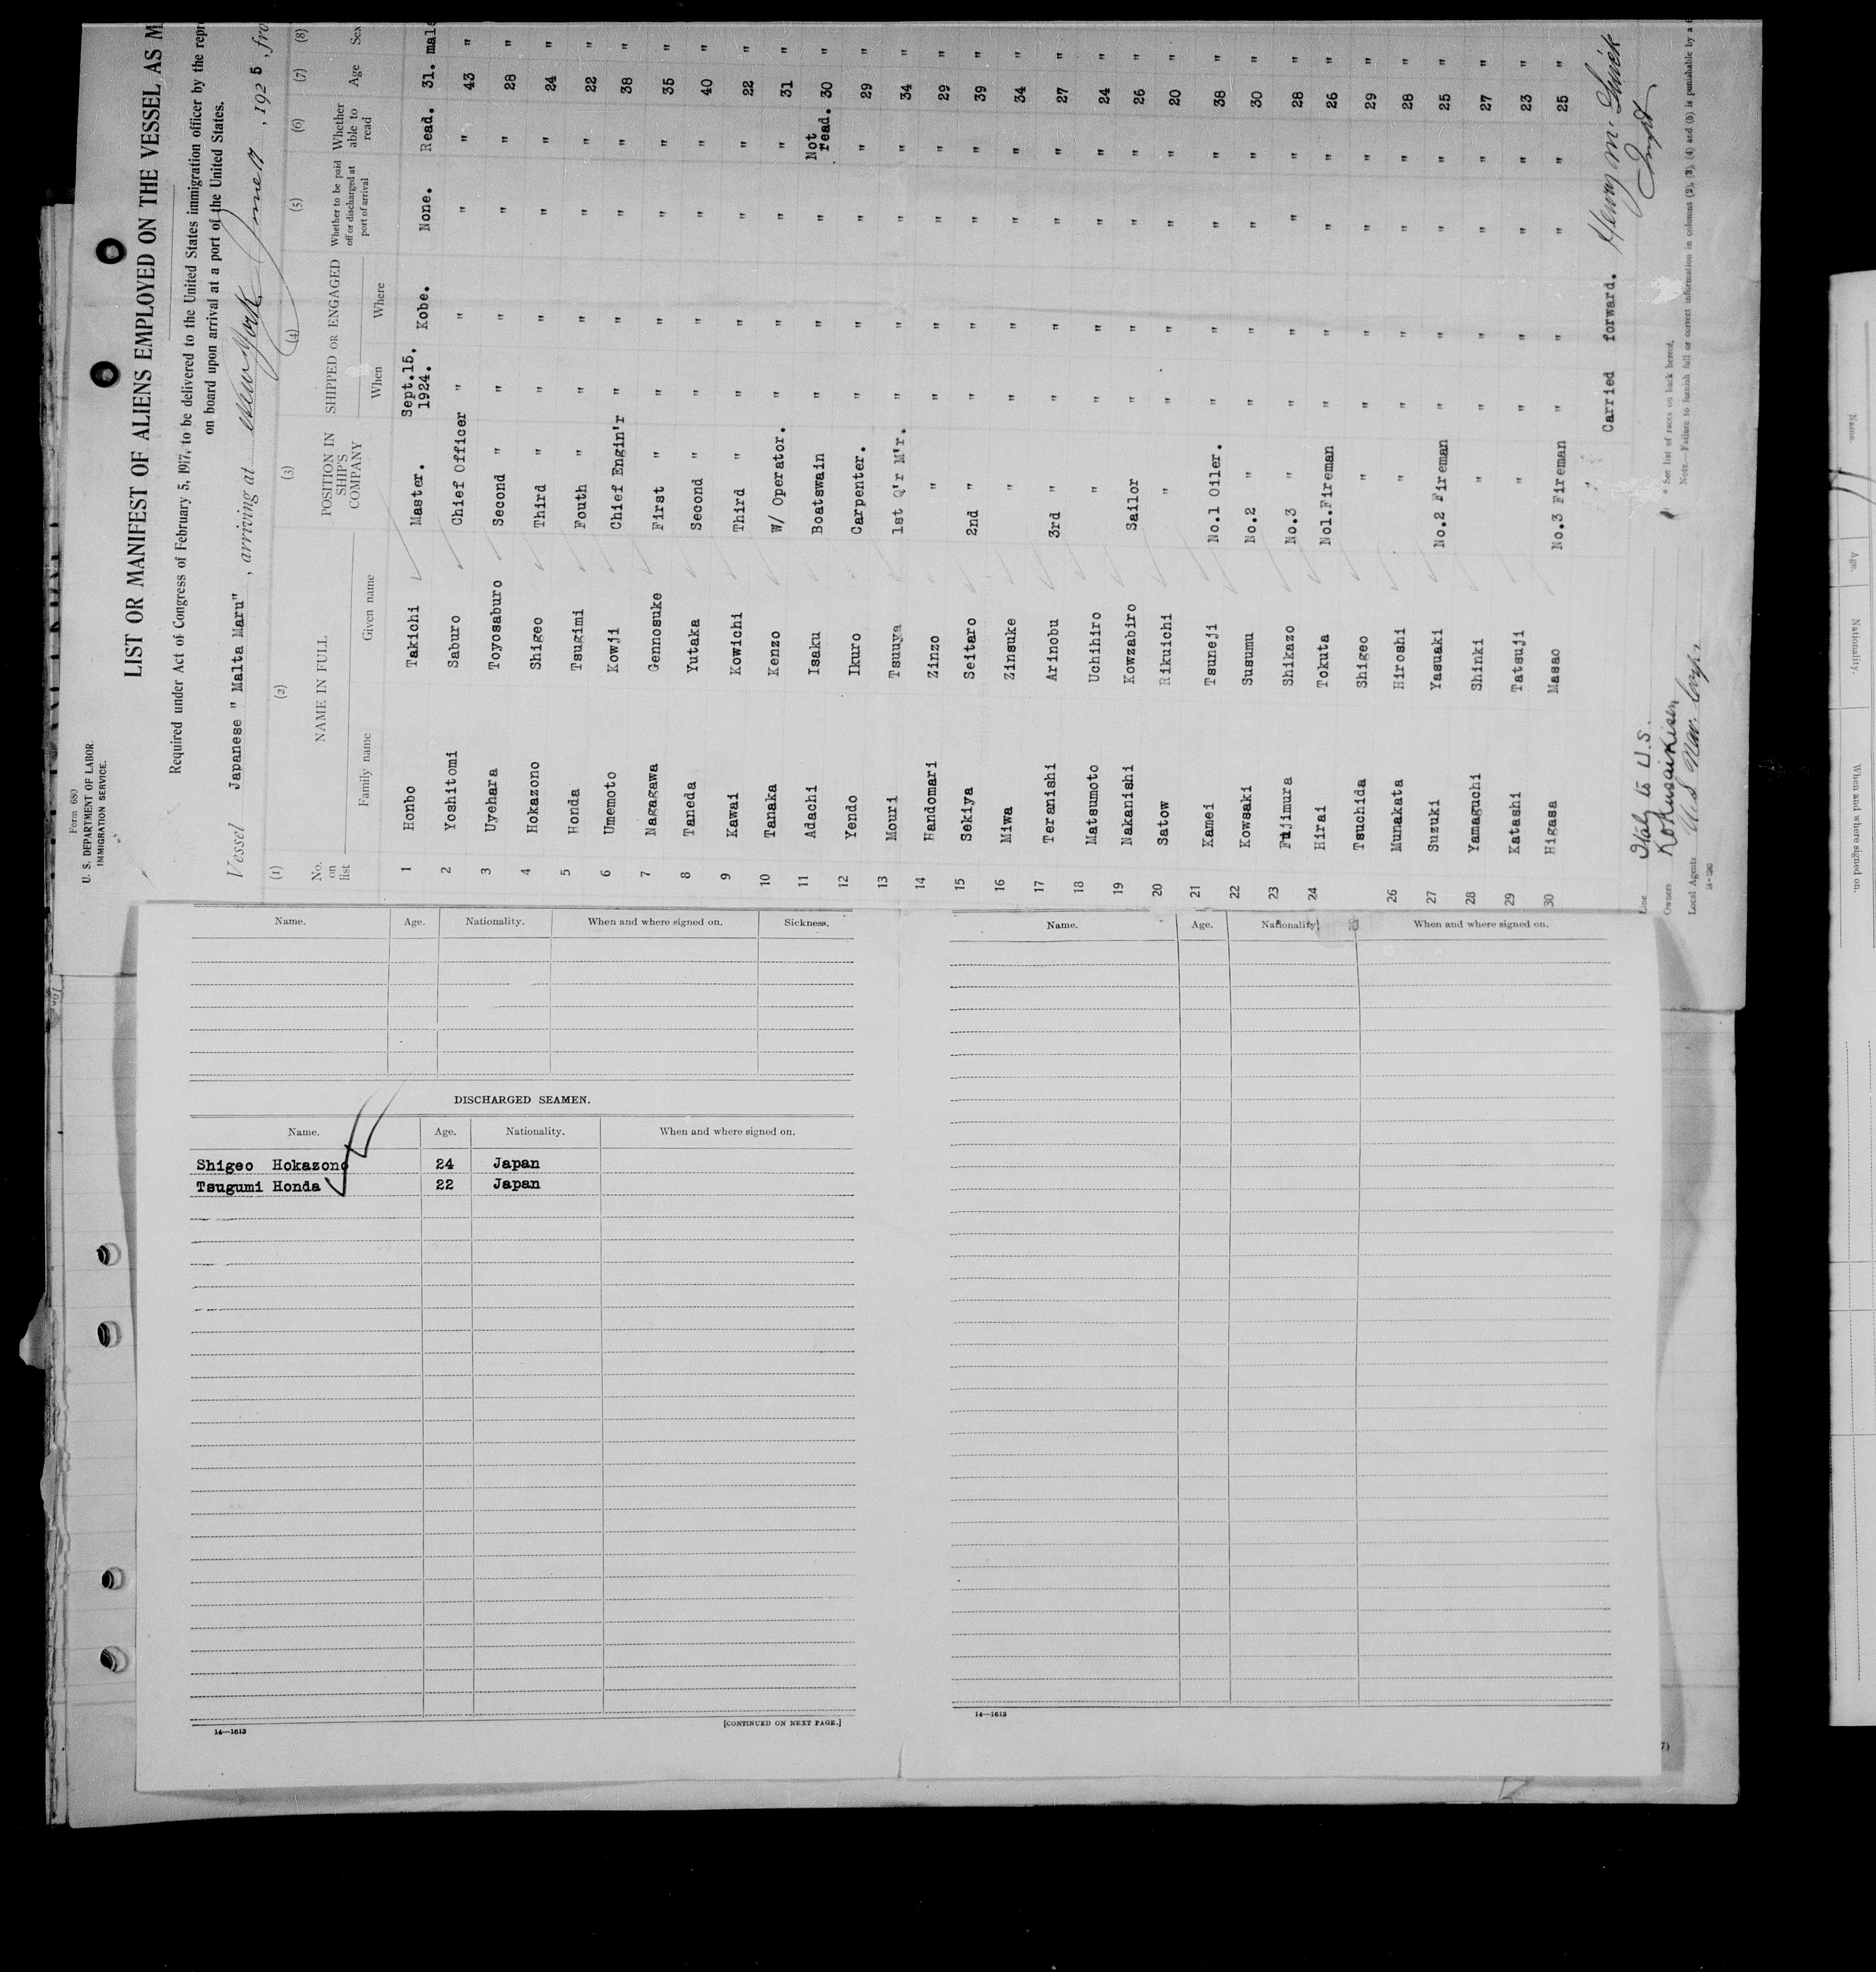 Form 680
U. S. DEPARTMENT OF LABOR
IMMIGRATION SERVICE.
LIST OR MANIFEST OF ALIENS EMPLOYED ON THE VESSEL AS M
Required under Act of Congress of February 5, 1917, to be delivered to the United States immigration officer by the repr
on board upon arrival at a port of the United States.
Vessel Japanese " Malta Maru" , arriving at New York June 17 , 1925 , fro
(1) (2) (3) (4) (5) (6) (7) (8)
No. on list NAME IN FULL Family name Given name POSITION IN SHIP'S COMPANY SHIPPED OR ENGAGED When Where Whether to be paid off or discharged at port of arrival Whether able to read Age Sex
1 Honbo Takichi Master. Sept.15. 1924. Kobe. None. Read. 31. mal
2 Yoshitomi Saburo Chief Officer " " " " 43 "
3 Uyehara Toyosaburo Second " " " " " 28 "
4 Hokazono Shigeo Third " " " " " 24 "
5 Honda Tsugimi Fouth " " " " " 22 "
6 Umemoto Kowji Chief Engin'r " " " " 38 "
7 Nagagawa Gennosuke First " " " " " 35 "
8 Taneda Yutaka Second " " " " " 40 "
9 Kawai Kowichi Third " " " " " 22 "
10 Tanaka Kenzo W/ Operator. " " " " 31 "
11 Adachi Isaku Boatswain " " " Not read. 30 "
12 Yendo Ikuro Carpenter. " " " " 29 "
13 Mouri Tsuuya 1st Q'r M'r. " " " " 34 "
14 Handomari Zinzo " " " " " 29 "
15 Sekiya Seitaro 2nd " " " " " 39 "
16 Miwa Zinsuke " " " " " 34 "
17 Teranishi Arinobu 3rd " " " " " 27 "
18 Matsumoto Uchihiro " " " " " 24 "
19 Nakanishi Kowzabiro Sailor " " " " 26 "
20 Satow Rikuichi " " " " " 20 "
21 Kamei Tsuneji No.1 Oiler. " " " " 38 "
22 Kowsaki Susumu No.2 " " " " " 30 "
23 Fujimura Shikazo No.3 " " " " " 28 "
24 Hirai Tokuta No1.Fireman " " " " 26 "
Tsuchida Shigeo " " " " " 29 "
26 Munakata Hiroshi " " " " " 28 "
27 Suzuki Yasuaki No.2 Fireman " " " " 25 "
28 Yamaguchi Shinki " " " " " 27 "
29 Katashi Tatsuji " " " " " 23 "
30 Higasa Masao No.3 Fireman " " " " 25 "
Carried forward.
Henry M.
Line Italy to U.S.
Owners Kokusai Kisen
Local Agents U S Nav. Corp.
* See list of races on back hereof.
Note.—Failure to furnish full or correct information in columns (2), (3), (4) and (5) is punishable by a
Name. Age. Nationality. When and where signed on. Sickness.
DISCHARGED SEAMEN.
Name. Age. Nationality. When and where signed on.
Shigeo Hokazono 24 Japan
Tsugumi Honda 22 Japan
14—1613
[CONTINUED ON NEXT PAGE.]
Name. Age. Nationality. When and where signed on.
14—1613
Name. Age. Nationality. When and where signed on.